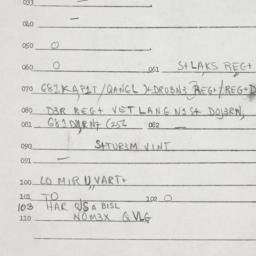 033
040 —
050 O
060 O 061 S+LAKS REG+
070 G81KAP1T/QANGL )+DROBN3 REG+/REG+D
080 D3R REG+ VET LANG N1S+ DOJ3RN,
081 G81DOJRN+ (256 082 —
090 S+TUR3M VINT
091 —
100 CO MIR U,VART+
101 TO 102 O
103 HAR O/S A BISL
110 NOM3X Q VLG